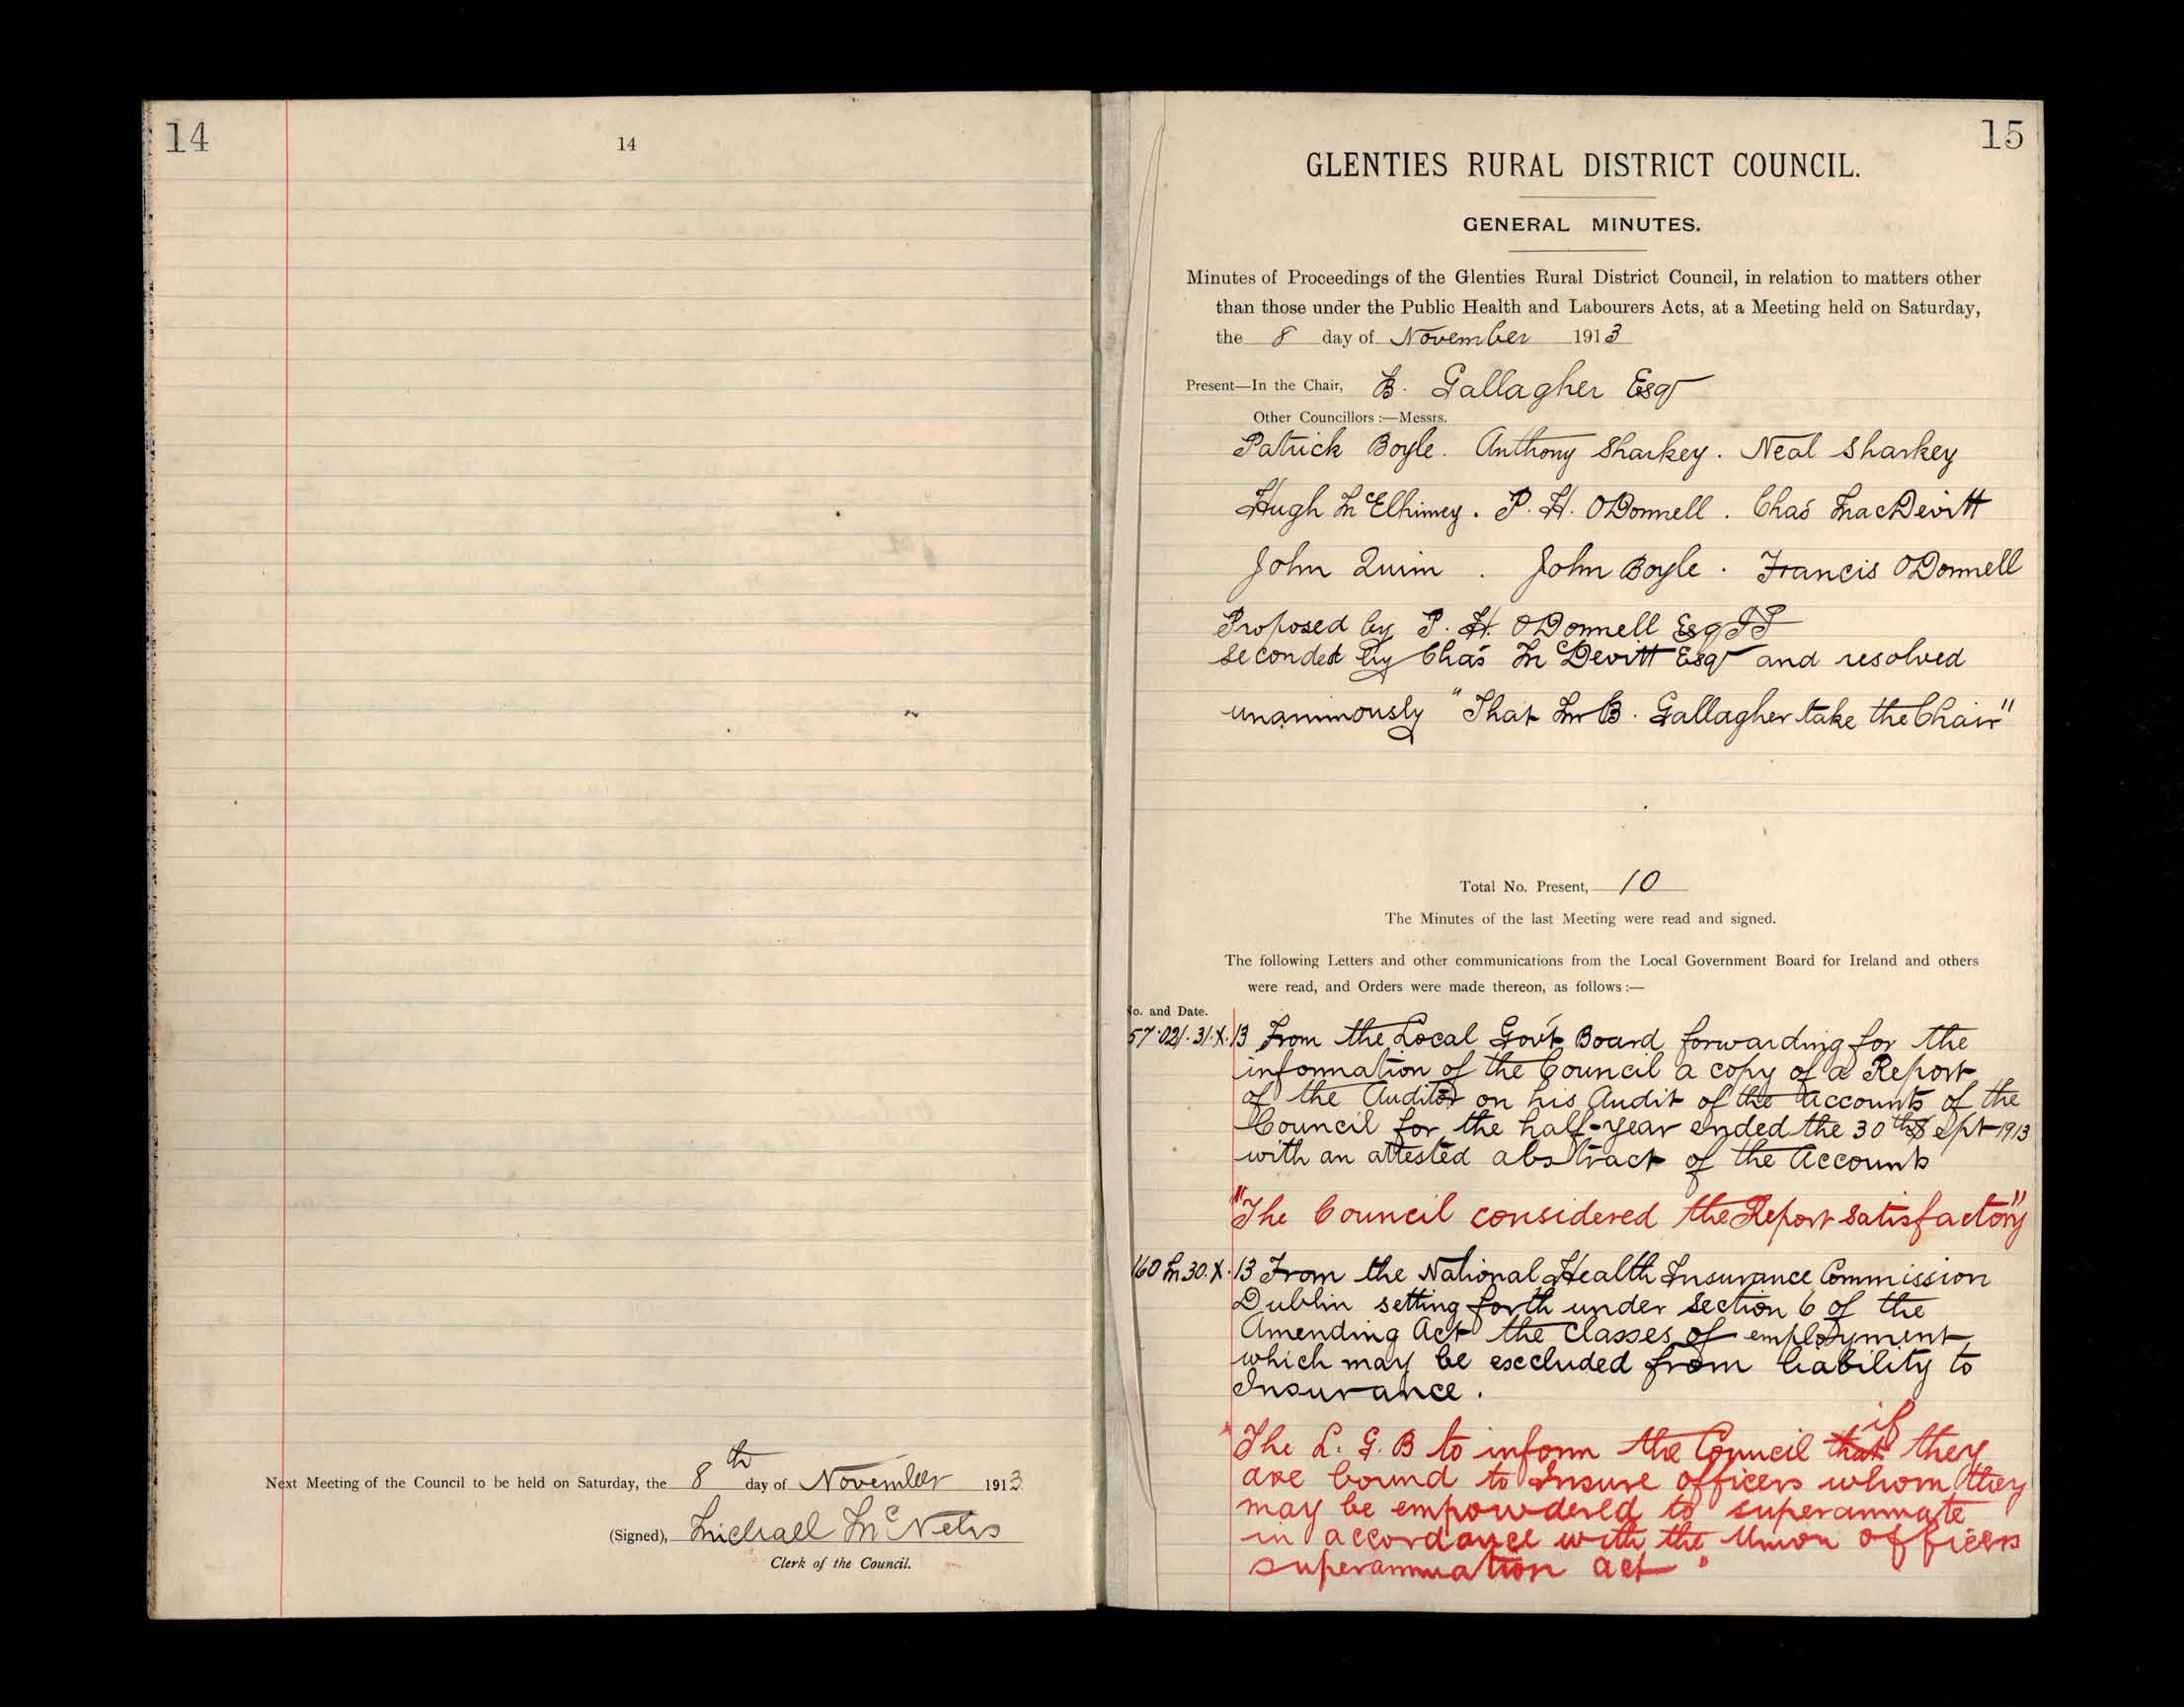 14
14
Next Meeting of the Council to be held on Saturday, the 8th day of November 1913
(Signed), Michael McNelis
Clerk of the Council.
15
GLENTIES RURAL DISTRICT COUNCIL.
GENERAL MINUTES.
Minutes of Proceedings of the Glenties Rural District Council, in relation to matters other
than those under the Public Health and Labourers Acts, at a Meeting held on Saturday,
the 8 day of November 1913
Present—In the Chair, B. Gallagher Esqr
Other Councillors :—Messrs.
Patrick Boyle. Anthony Sharkey. Neal Sharkey
Hugh McElhinney. P. H. ODonnell. Chas MacDevitt
John Quinn. John Boyle. Francis ODonnell
Proposed by P. H. ODonnell Esq JP
seconded by Chas McDevitt Esqr and resolved
unanimously "That Mr B. Gallagher take the Chair"
Total No. Present, 10
The Minutes of the last Meeting were read and signed.
The following Letters and other communications from the Local Government Board for Ireland and others
were read, and Orders were made thereon, as follows :—
No. and Date.
57.021.31.X.13 From the Local Govt Board forwarding for the
information of the Council a copy of a Report
of the Auditor on his Audit of the Accounts of the
Council for the half-year ended the 30th Sept 1913
with an attested abstract of the Accounts
"The Council considered the Report satisfactory"
160 M 30.X.13 From the National Health Insurance Commission
Dublin setting forth under Section 6 of the
Amending Act the classes of employment
which may be excluded from liability to
Insurance.
"The L. G. B to inform the Council that if they
are bound to Insure officers whom they
may be empowdered to superannuate
in accordance with the Union officers
superannuation act"